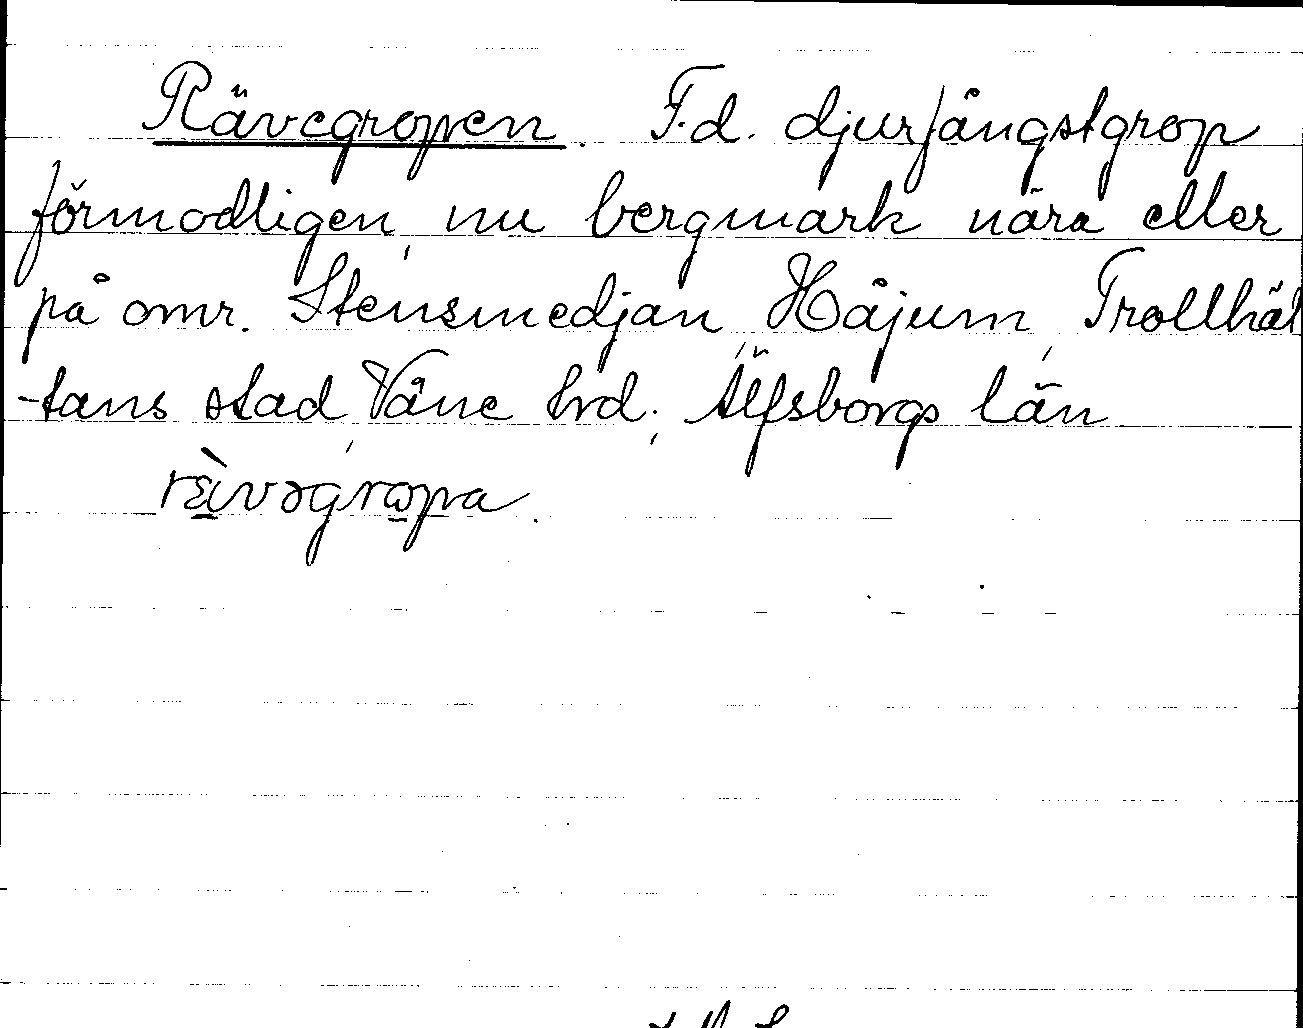 Rävegropen. F.d. djurfångstgrop
förmodligen, nu bergmark nära eller
på omr. Stensmedjan, Håjum, Trollhät
-tans stad, Våne hrd, Älfsborgs län
rὲ̱ivəgrɷ̱pa.